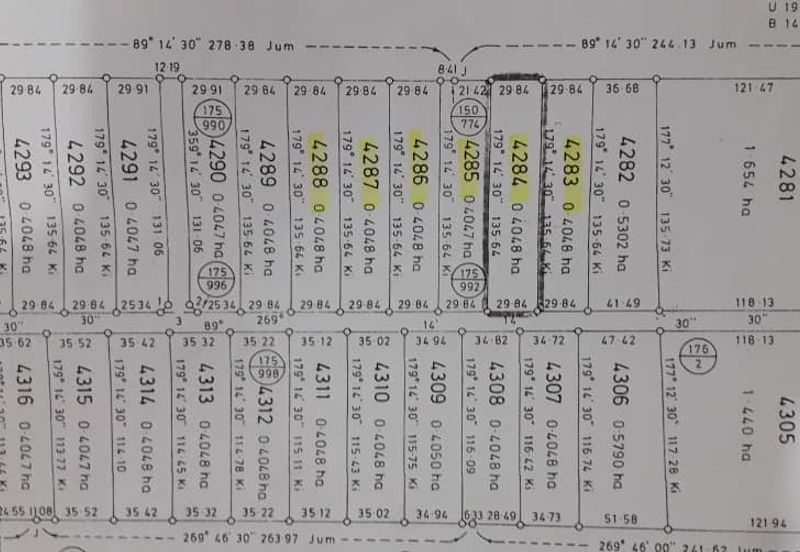 U 19
B 14
89° 14' 30" 278·38 Jum
89° 14' 30" 244·13 Jum
12·19
8·41 J
29·84 29·84 29·91 29·91 29·84 29·84 29·84 29·84 21·42 29·84 29·84 36·68 121·47
175
990
150
774
4293 0·4048 ha
179° 14' 30" 135·64 Ki
4292 0·4048 ha
179° 14' 30" 135·64 Ki
4291 0·4047 ha
179° 14' 30" 131·06
359° 14' 30" 131·06
4290 0·4047 ha
179° 14' 30" 135·64 Ki
4289 0·4048 ha
179° 14' 30" 135·64 Ki
4288 0·4048 ha
179° 14' 30" 135·64 Ki
4287 0·4048 ha
179° 14' 30" 135·64 Ki
4286 0·4048 ha
179° 14' 30" 135·64 Ki
4285 0·4047 ha
179° 14' 30" 135·64
4284 0·4048 ha
179° 14' 30" 135·64 Ki
4283 0·4048 ha
179° 14' 30" 135·64 Ki
4282 0·5302 ha
177° 12' 30" 135·73 Ki
4281
1·654 ha
175
996
175
992
29·84 29·84 25·34 1 2 25·34 29·84 29·84 29·84 29·84 29·84 29·84 29·84 41·49 118·13
30" 30" 3 89° 269° 14' 14' 30" 30"
35·62 35·52 35·42 35·32 35·22 35·12 35·02 34·94 34·82 34·72 47·42 118·13
175
998
176
2
4316 0·4047 ha
179° 14' 30" 113·77 Ki
4315 0·4047 ha
179° 14' 30" 114·10
4314 0·4048 ha
179° 14' 30" 114·45 Ki
4313 0·4048 ha
179° 14' 30" 114·78 Ki
4312 0·4048 ha
179° 14' 30" 115·11 Ki
4311 0·4048 ha
179° 14' 30" 115·43 Ki
4310 0·4048 ha
179° 14' 30" 115·75 Ki
4309 0·4050 ha
179° 14' 30" 116·09
4308 0·4048 ha
179° 14' 30" 116·42 Ki
4307 0·4048 ha
179° 14' 30" 116·74 Ki
4306 0·5790 ha
177° 12' 30" 117·28 Ki
4305
1·440 ha
24·55 11·08 35·52 35·42 35·32 35·22 35·12 35·02 34·94 6·33 28·49 34·73 51·58 121·94
J
269° 46' 30" 263·97 Jum
269° 46' 00" 241·62 Jum